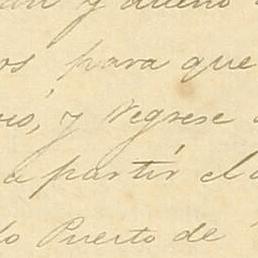 y dueño
os, para que
ció, y regrese
a partir el
lo Puerto de